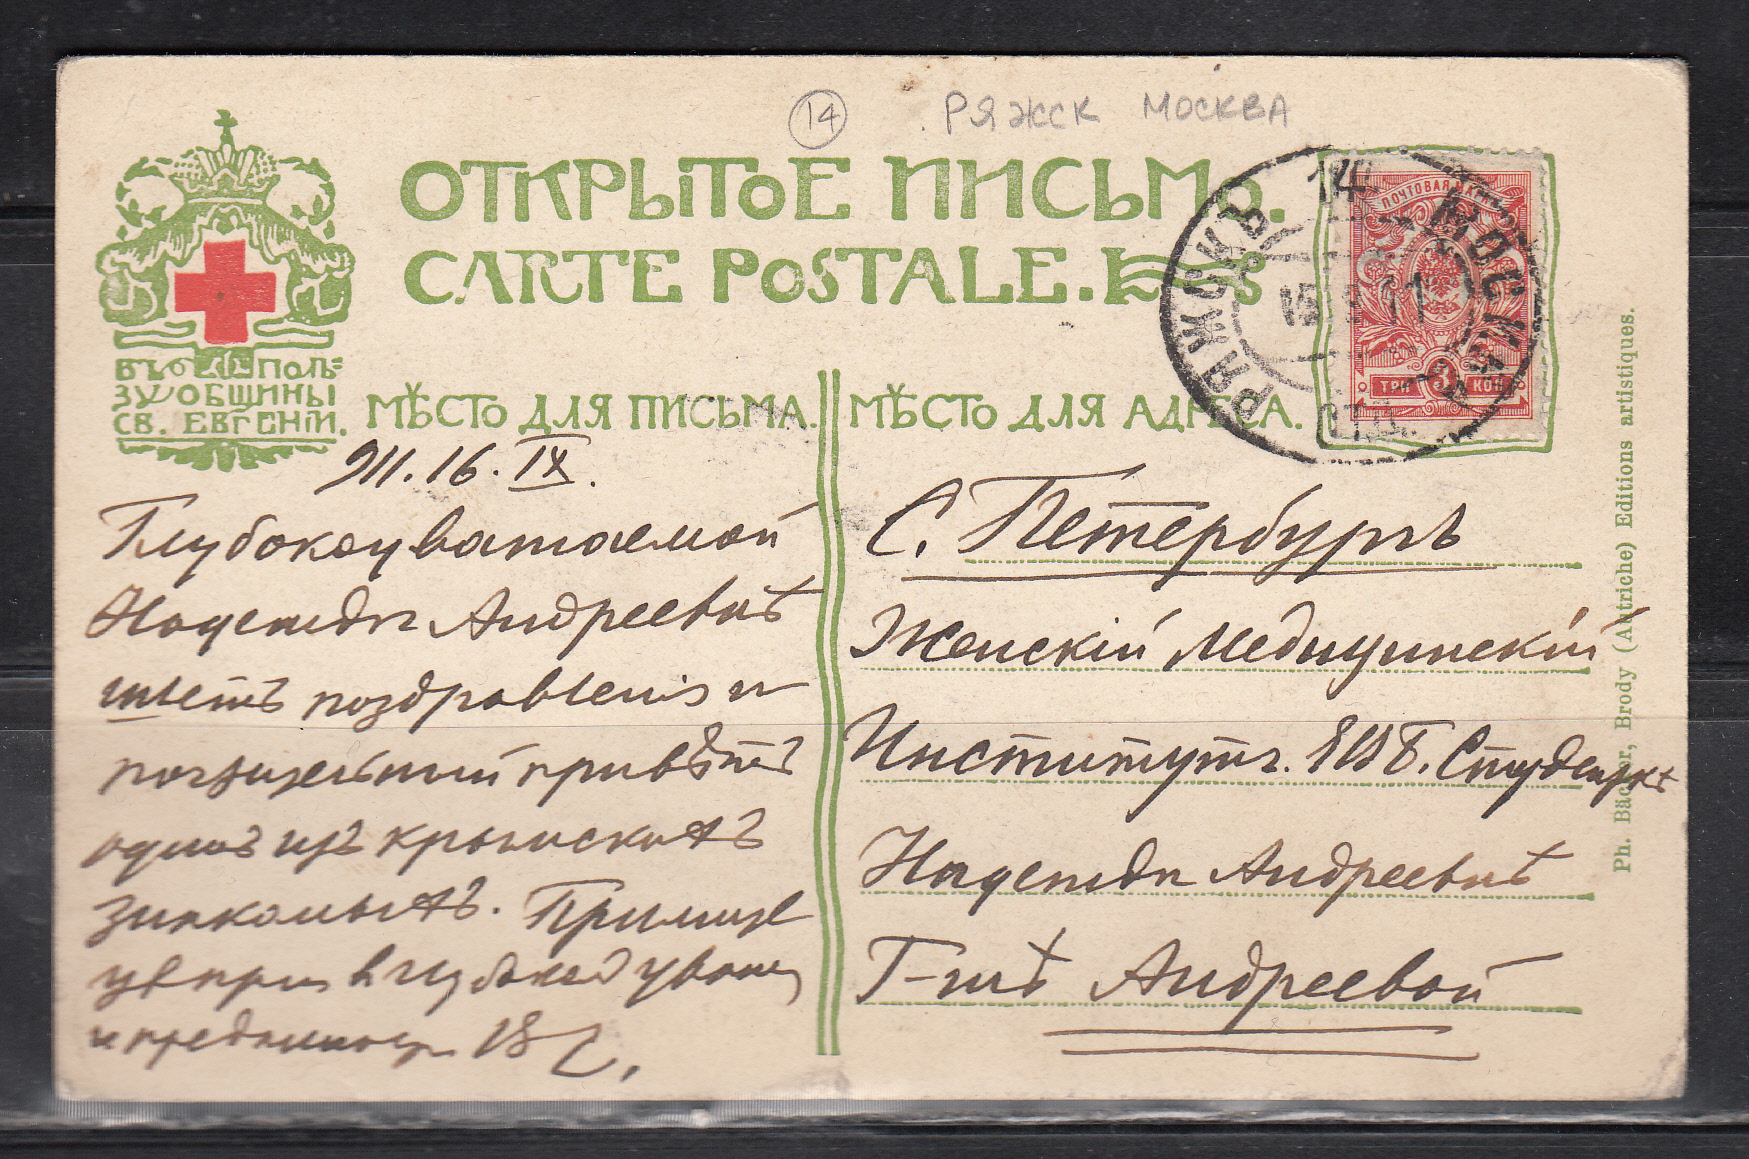 14 РЯЖСК МОСКВА
ОТКРЫТОЕ ПИСЬМО.
CARTE POSTALE.
ВЪ ПОЛЬ=
ЗУ ОБЩИНЫ
СВ. ЕВГЕНIИ.
МѢСТО ДЛЯ ПИСЬМА.
МѢСТО ДЛЯ АДРЕСА.
ПОЧТОВАЯ МАРКА
ТРИ 3 КОП
РЯЖСКЪ 14 МОСКВА
11
911. 16. IX.
Глубокоуважаемой
Надеждѣ Андреевнѣ
шлетъ поздравленiя и
привѣтъ
одинъ изъ крымскихъ
знакомыхъ. Примите
и
С. Петербургъ
Женскiй Медицинскiй
Институтъ. Студенткѣ
Надеждѣ Андреевнѣ
Г-жѣ Андреевой
Ph. Bäcker, Brody (Autriche) Editions artistiques.